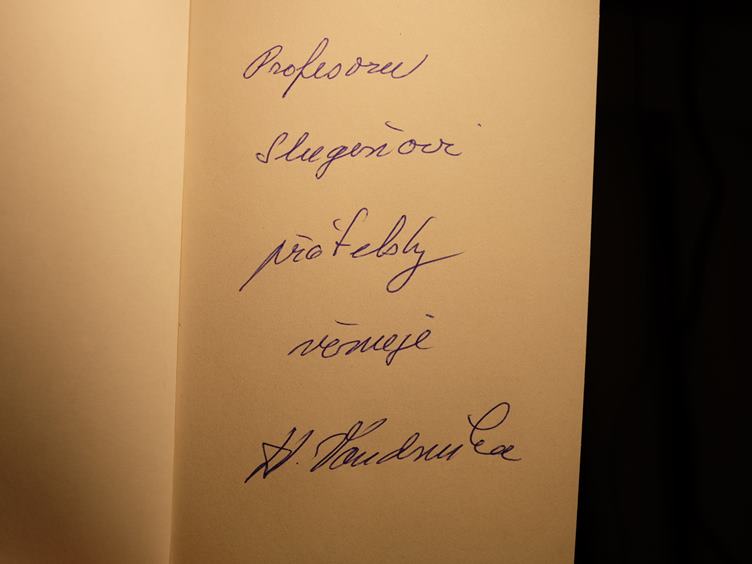 Profesoru
Slugeňovi
přátelsky
věnuje